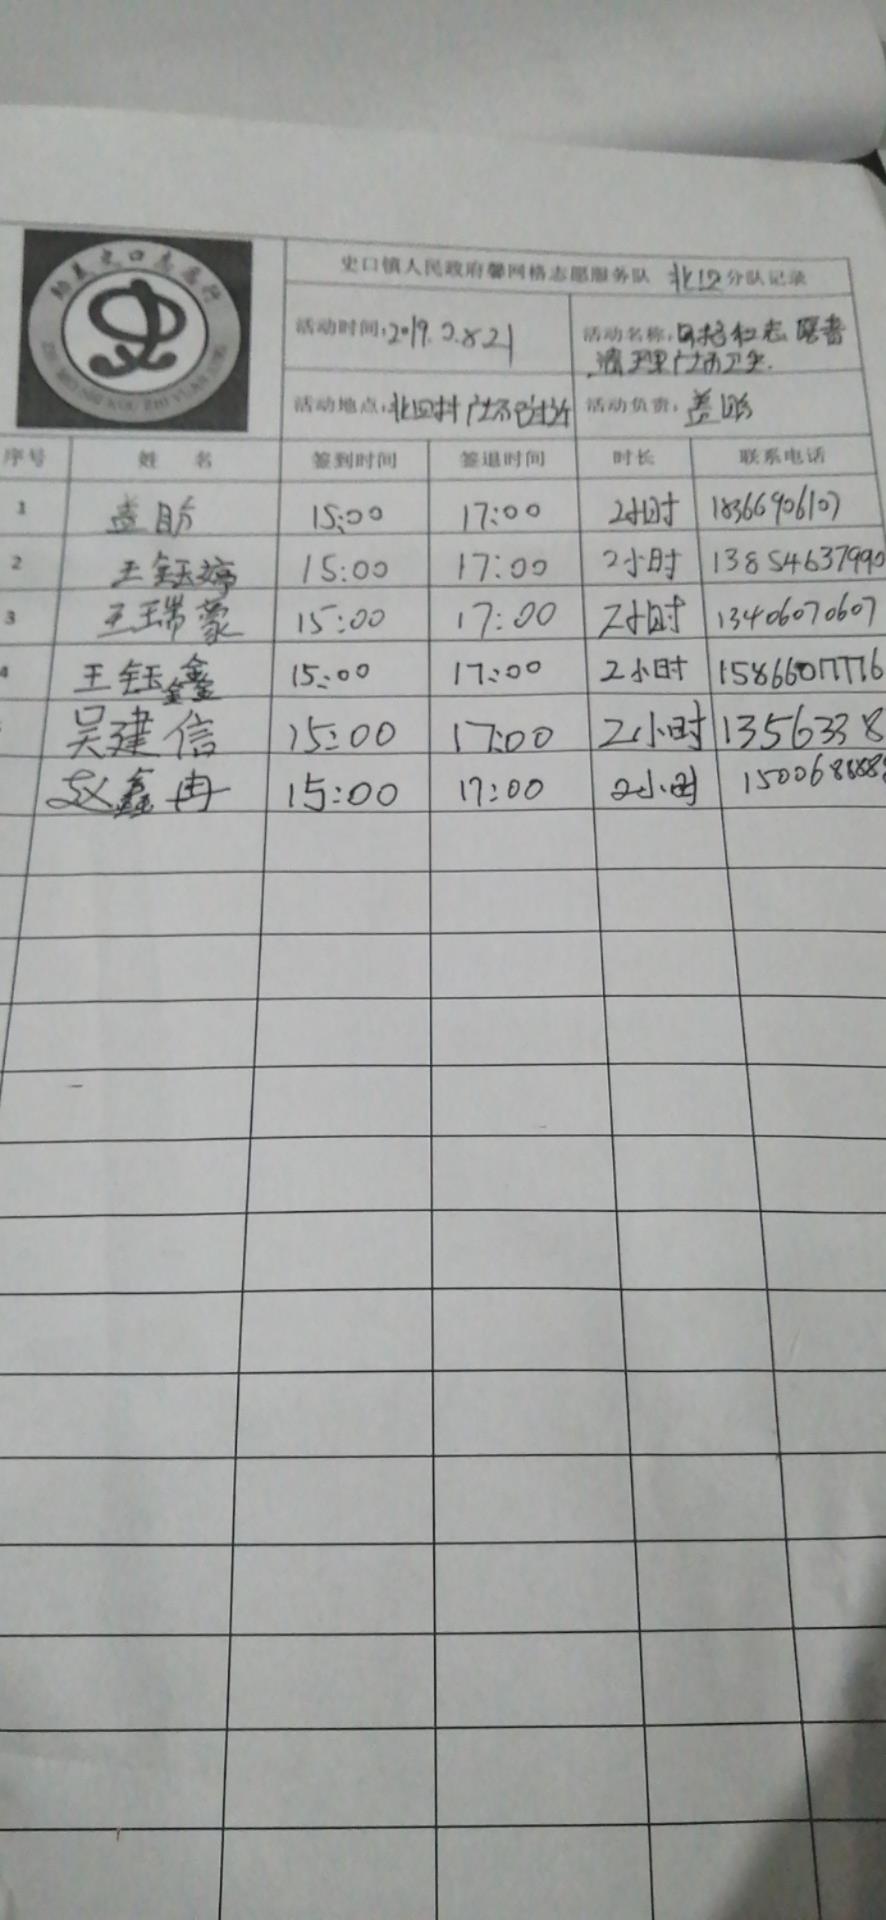 史口镇人民政府馨网格志愿服务队 分队记录
活动时间:2019. 8 21
活动名称: 志愿者
清理广场卫生.
活动地点: 广场
活动负责:
序号 姓 名 签到时间 签退时间 时长 联系电话
1 15:00 17:00 2小时 18366906107
2 王钰婷 15:00 17:00 2小时 13854637990
3 王瑞蒙 15:00 17:00 2小时 13406070607
4 王钰鑫 15:00 17:00 2小时
吴建信 15:00 17:00 2小时 1356338
赵鑫冉 15:00 17:00 2小时